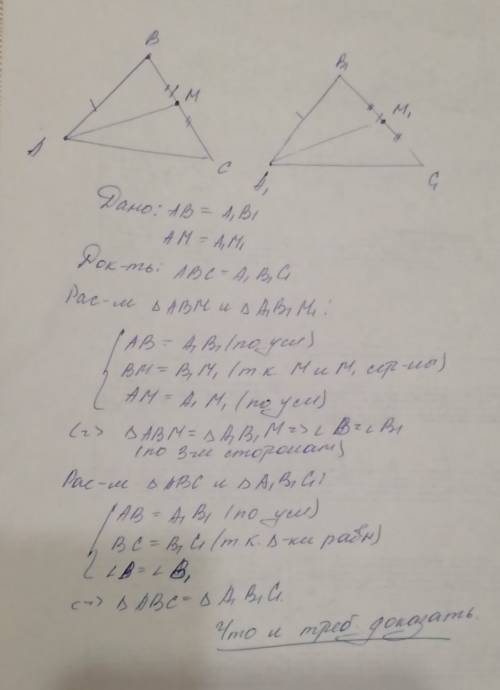 B
M
A
C
B₁
M₁
A₁
C₁
Дано: AB = A₁B₁
AM = A₁M₁
Док-ть: ABC = A₁B₁C₁
Рас-м △ABM и △A₁B₁M₁:
AB = A₁B₁ (по усл)
BM = B₁M₁ (т.к. M и M₁ сер-ны)
AM = A₁M₁ (по усл)
(=> △ABM = △A₁B₁M => ∠B = ∠B₁
(по 3-м сторонам)
Рас-м △ABC и △A₁B₁C₁:
AB = A₁B₁ (по усл)
BC = B₁C₁ (т.к. △-ки равн)
∠B = ∠B₁
(=> △ABC = △A₁B₁C₁.
Что и треб. доказать.